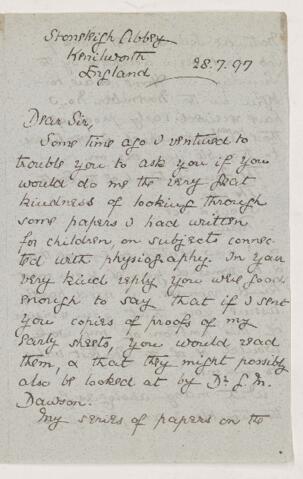 Stoneleigh Abbey
Kenilworth
England
28.7.97
Dear Sir,
Some time ago I ventured to
trouble you to ask you if you
would do me the very great
kindness of looking through
some papers I had written
for children, on subjects connec-
ted with physiography. In your
very kind reply you were good
enough to say that if I sent
you copies of proofs of my
early sheets, you would read
them, & that they might possibly
also be looked at by Dr. G. M.
Dawson.
My series of papers on the